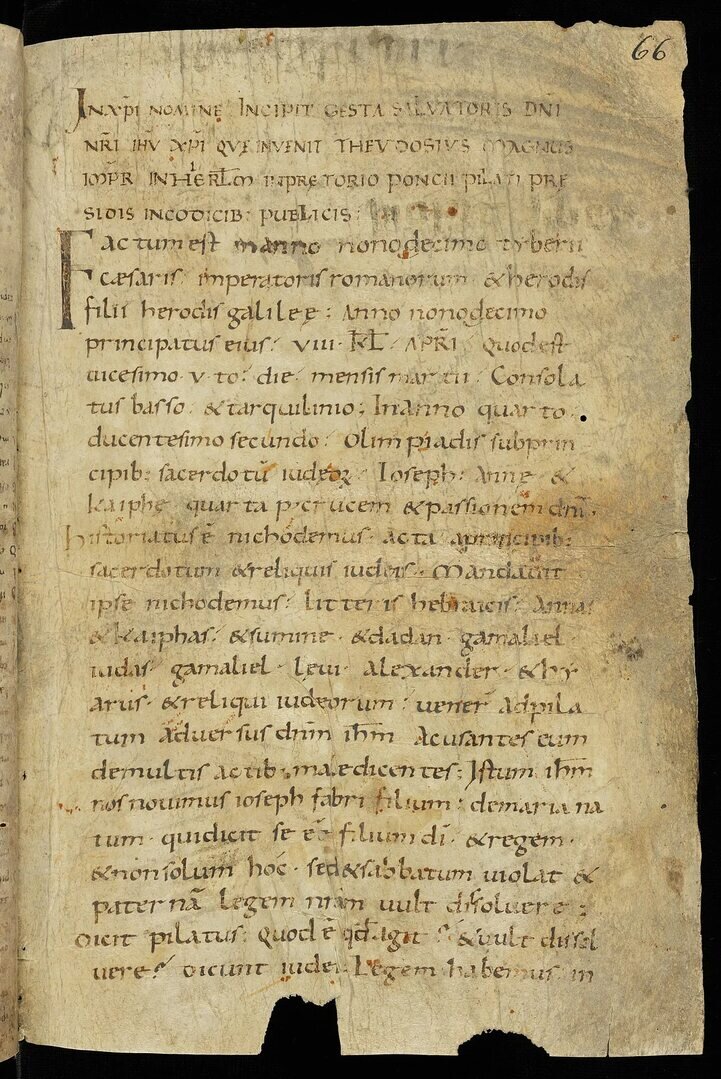 66
IN XPI NOMINE INCIPIT GESTA SALVATORIS DNI
NRI IHU XPI QUE INVENIT THEUDOSIUS MAGNUS
IMPR IN HIERLM IN PRETORIO PONCII PILATI PRE
SIDIS IN CODICIB: PUBLICIS:
Factum est in anno nonodecimo tyberii
cæsaris imperatoris romanorum & herodis
filii herodis galileę: Anno nonodecimo
principatus eius: VIII KL APRI Quod est
uicesimo v to die mensis martii Consola
tus basso & tarquilinio: In anno quarto
ducentesimo secundo: Olimpiadis sub prin
cipib: sacerdotū iudeoꝝ Ioseph: Anne &
kaiphe quarta p crucem & passionem dni
historiatus ē nichodemus acta a principib:
sacerdotum & reliquis iudeis Mandauit
ipse nichodemus: litteris hebraicis: Annas
& kaiphas: & sumine & dadan gamaliel
iudas gamaliel leui Alexander & hy
arus & reliqui iudeorum: uener Ad pila
tum Aduersus dnm ihm Acusantes eum
de multis actib: maledicentes: Istum ihm
nos nouimus ioseph fabri filium: de maria na
tum qui dicit se eē filium di & regem
& non solum hoc sed & sabbatum uiolat &
paternā legem nram uult dissoluere:
Dicit pilatus: Quod ē qd agit? & uult dissol
uere? Dicunt iudei: Legem habemus in